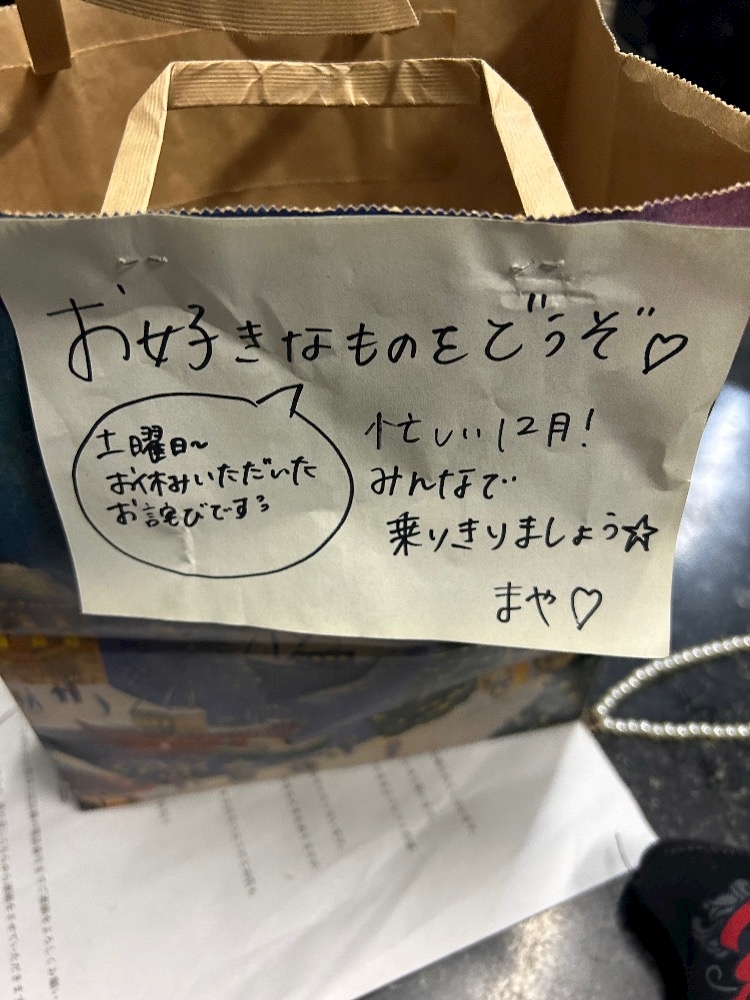 お好きなものをどうぞ♡
土曜日~
お休みいただいた
お詫びです
忙しい12月!
みんなで
乗りきりましょう☆
まや♡